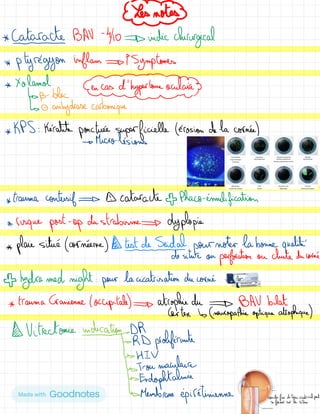 Les notes
* Cataracte BAV -4/10 ⇒ indic chirurgical
* ptyrégyon inflam ⇒ ↑ Symptomes
* Xolamol (en cas d'hypertonie oculaire)
→ B- bloc
→ ⊖ anhydrase carbonique
* KPS : Kératite ponctuée superficielle (érosion de la cornée)
→ Micro lésions
* trauma contusif ⇒ △ cataracte Phaco-émulsification
* risque post-op du strabisme ⇒ dyplopie
* plaie situé (cornéenne) test de Seidal pour noter la bonne qualité
de suture ou perforation ou du cornée
hydra med night : pour la cicatrisation du cornée
* trauma Cranienne (occipital) ⇒ atrophie du ⇒ BAV bilat
Cortex ↳ (neuropathie optique atrophique)
Vitrectomie indication → DR
→ RD proliférante
→ HIV
→ Trou maculaire
→ Endophtalmie
→ Membrane épirétinienne
Made with Goodnotes